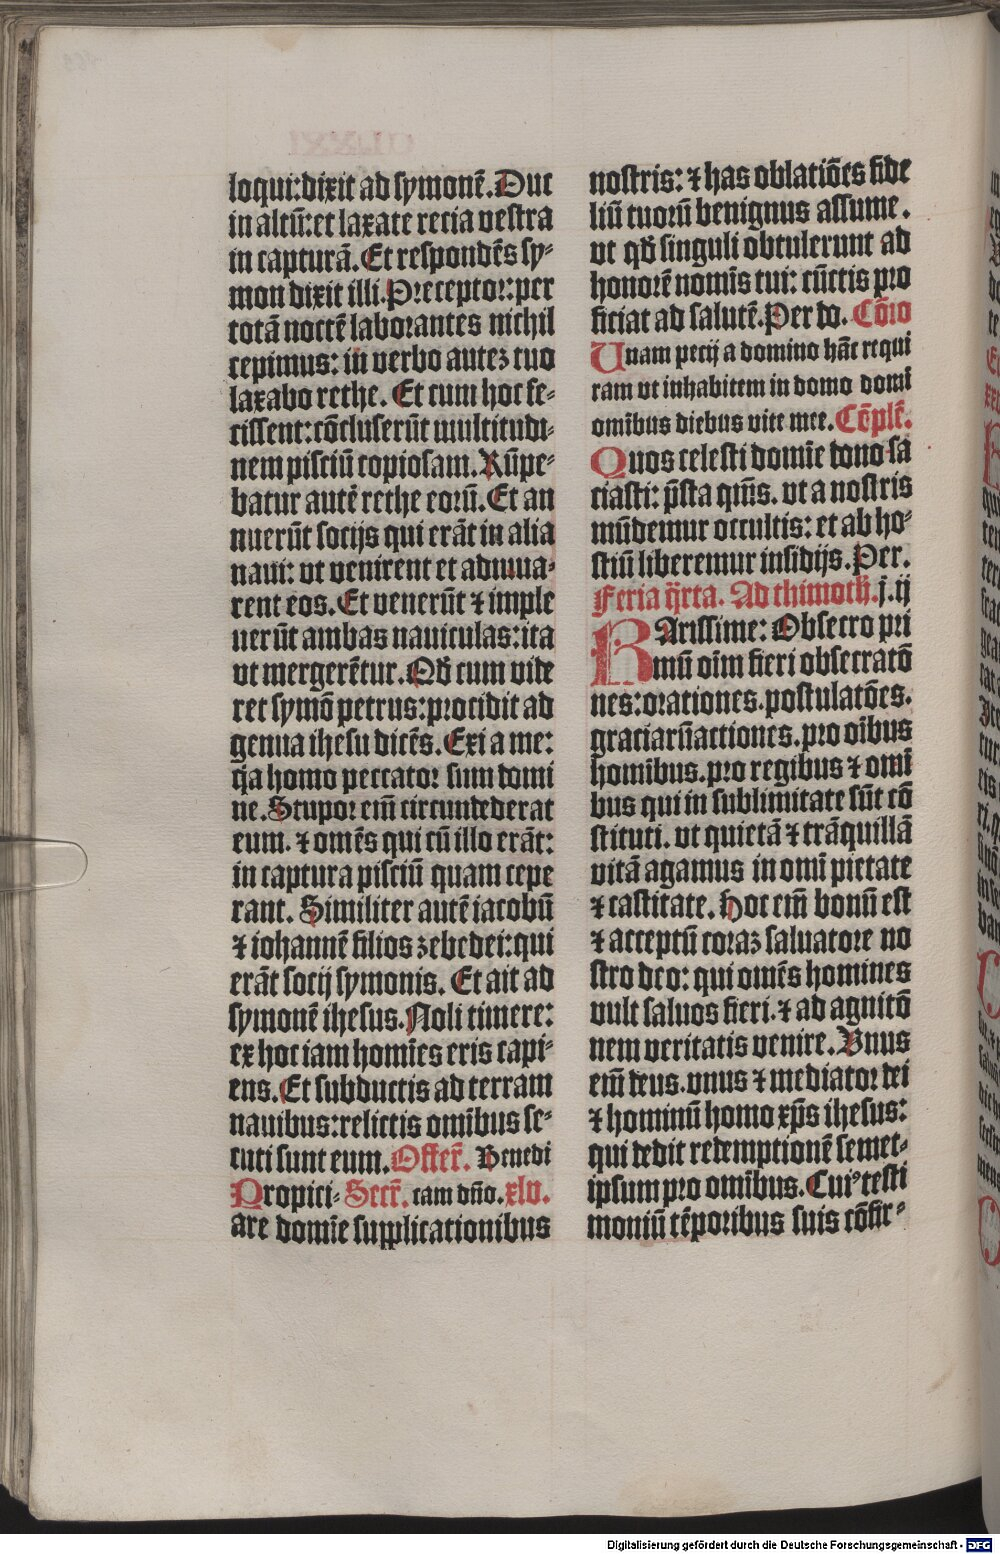 loqui: dixit ad symonē. Duc
in altū: et laxate recia vestra
in capturā. Et respondēs sy-
mon dixit illi. Preceptor: per
totā noctē laborantes nichil
cepimus: in verbo autez tuo
laxabo rethe. Et cum hoc fe-
cissent: cōcluserūt multitudi-
nem pisciū copiosam. Rūpe-
batur autē rethe eorū. Et an
nuerūt socijs qui erāt in alia
naui: vt venirent et adiuua-
rent eos. Et venerūt ⁊ imple
uerūt ambas nauiculas: ita
vt mergerētur. Qd̄ cum vide
ret symō petrus: procidit ad
genua ihesu dicēs. Exi a me:
q̄a homo peccator sum domi
ne. Stupor em̄ circundederat
eum. ⁊ omēs qui cū illo erāt:
in captura pisciū quam cepe
rant. Similiter autē iacobū
⁊ iohannē filios zebedei: qui
erāt socij symonis. Et ait ad
symonē ihesus. Noli timere:
ex hoc iam homīes eris capi-
ens. Et subductis ad terram
nauibus: relictis omībus se-
cuti sunt eum. Offer̄. Benedi
Propici- Secr̄. cam dn̄o. xlv.
are domīe supplicationibus
nostris: ⁊ has oblatiōes fide
liū tuorū benignus assume.
vt qd̄ singuli obtulerunt ad
honorē nomīs tui: cūctis pro
ficiat ad salutē. Per do. Cōio
Unam pecij a domino hāc requi
ram vt inhabitem in domo domī
omībus diebus vite mee. Cōplē.
Quos celesti domīe dono sa
ciasti: p̄sta qm̄s. vt a nostris
mūdemur occultis: et ab ho-
stiū liberemur insidijs. Per.
Feria q̄rta. Ad thimoth̄. j. ij
KArissime: Obsecro pri
mū oīm fieri obsecratō
nes: orationes. postulatōes.
graciarūactiones. pro oībus
homībus. pro regibus ⁊ omī
bus qui in sublimitate sūt cō
stituti. vt quietā ⁊ trāquillā
vitā agamus in omī pietate
⁊ castitate. Hoc em̄ bonū est
⁊ acceptū coraz saluatore no
stro deo: qui omēs homines
vult saluos fieri. ⁊ ad agnitō
nem veritatis venire. Vnus
em̄ deus. vnus ⁊ mediator dei
⁊ hominū homo xp̄s ihesus:
qui dedit redemptionē semet-
ipsum pro omībus. Cuiꝰ testi
moniū tēporibus suis cōfir-
Digitalisierung gefördert durch die Deutsche Forschungsgemeinschaft - DFG